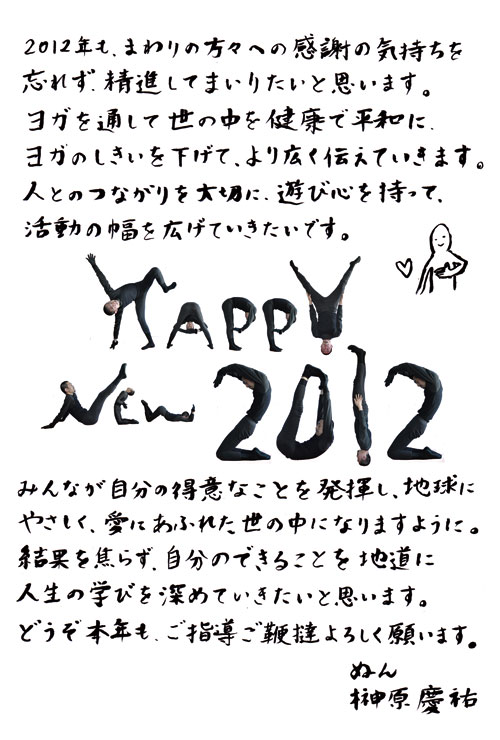 2012年も、まわりの方々への感謝の気持ちを
忘れず、精進してまいりたいと思います。
ヨガを通して世の中を健康で平和に、
ヨガのしきいを下げて、より広く伝えていきます。
人とのつながりを大切に、遊び心を持って、
活動の幅を広げていきたいです。
HAPPY
NEW 2012
みんなが自分の得意なことを発揮し、地球に
やさしく、愛にあふれた世の中になりますように。
結果を焦らず、自分のできることを地道に
人生の学びを深めていきたいと思います。
どうぞ本年も、ご指導ご鞭撻よろしく願います。
ぬん
榊原慶祐